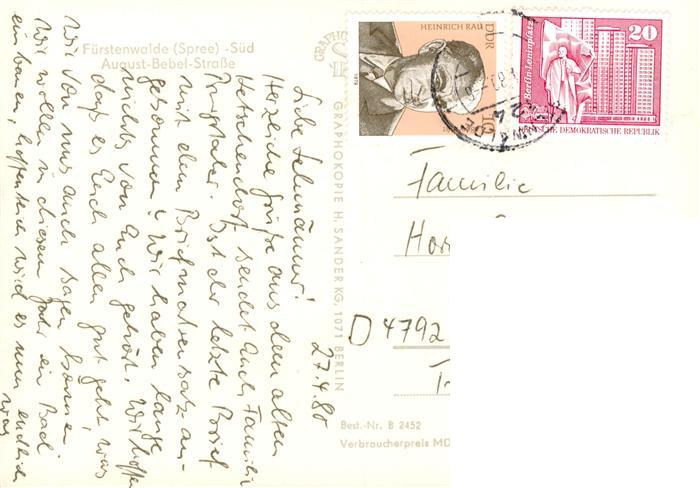 Fürstenwalde (Spree) -Süd
August-Bebel-Straße
HEINRICH RAU
DDR
10
20
Berlin-Leninplatz
DEUTSCHE DEMOKRATISCHE REPUBLIK
GRAPHOKOPIE H. SANDER KG, 1071 BERLIN
27.4.80
Liebe Lehmänner!
Herzliche Grüße aus dem alten
Ketschendorf sendet Euch Familie
Ist der letzte Brief
mit dem Briefmarkensatz an-
gekommen? Wir haben lange
nichts von Euch gehört. Wir hoffen
daß es Euch allen gut geht, was
wir von uns auch sagen können.
Wir wollen in diesem Jahr ein Bad
einbauen, hoffentlich wird es nun endlich
was
Familie
D 4792
Best.-Nr. B 2452
Verbraucherpreis MD